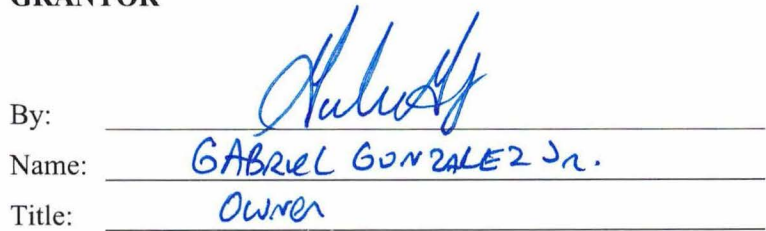 GRANTOR
By:
Name: GABRIEL GONZALEZ JR.
Title: Owner